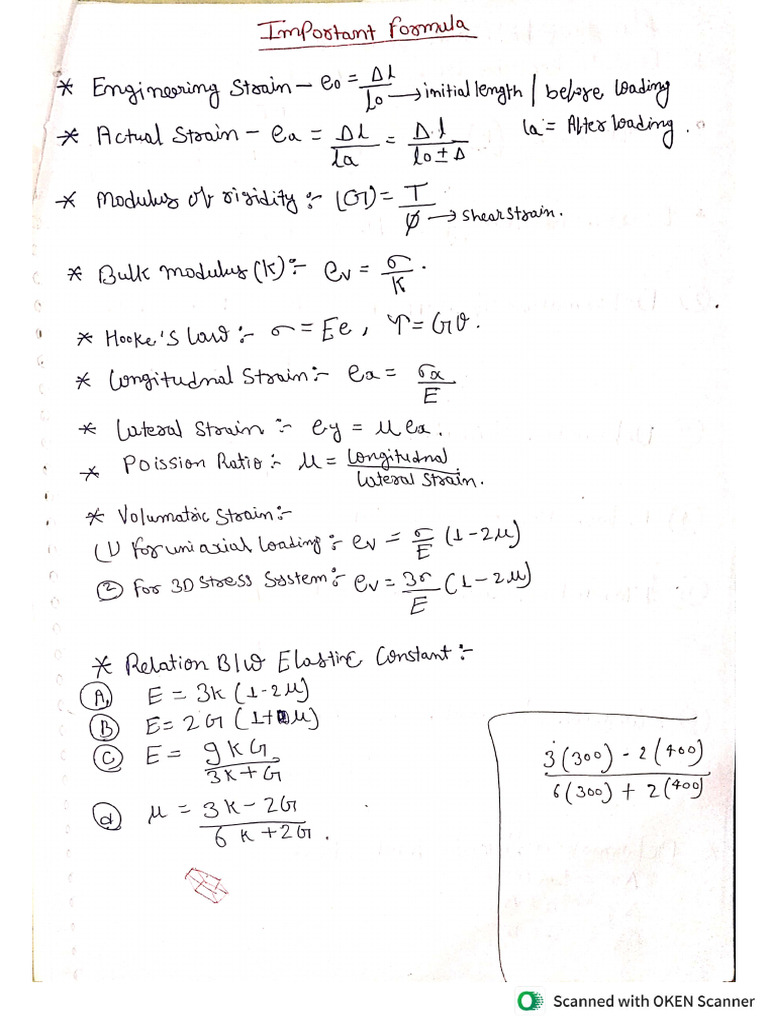 Important Formula
* Engineering Strain - e₀ = Δl/l₀ → initial length / before loading
* Actual Strain - eₐ = Δl/lₐ = Δl/(l₀ ± Δ) lₐ = After loading.
* Modulus of rigidity :- (G) = T/φ → shear strain.
* Bulk modulus (K) :- eᵥ = σ/K .
* Hooke's Law :- σ = Ee , τ = Gθ .
* Longitudnal Strain :- eₓ = σₓ/E
* Lateral Strain :- ey = μ eₓ .
* Poission Ratio :- μ = Longitudnal/Lateral Strain.
* Volumatric Strain :-
(1) for uniaxial Loading :- eᵥ = σ/E (1-2μ)
(2) For 3D Stress System :- eᵥ = 3σ/E (1-2μ)
* Relation B/W Elastinc Constant :-
(A) E = 3K (1-2μ)
(B) E = 2G (1+μ)
(C) E = 9KG/(3K+G)
(d) μ = (3K-2G)/(6K+2G) .
(3(300) - 2(400))/(6(300) + 2(400))
Scanned with OKEN Scanner